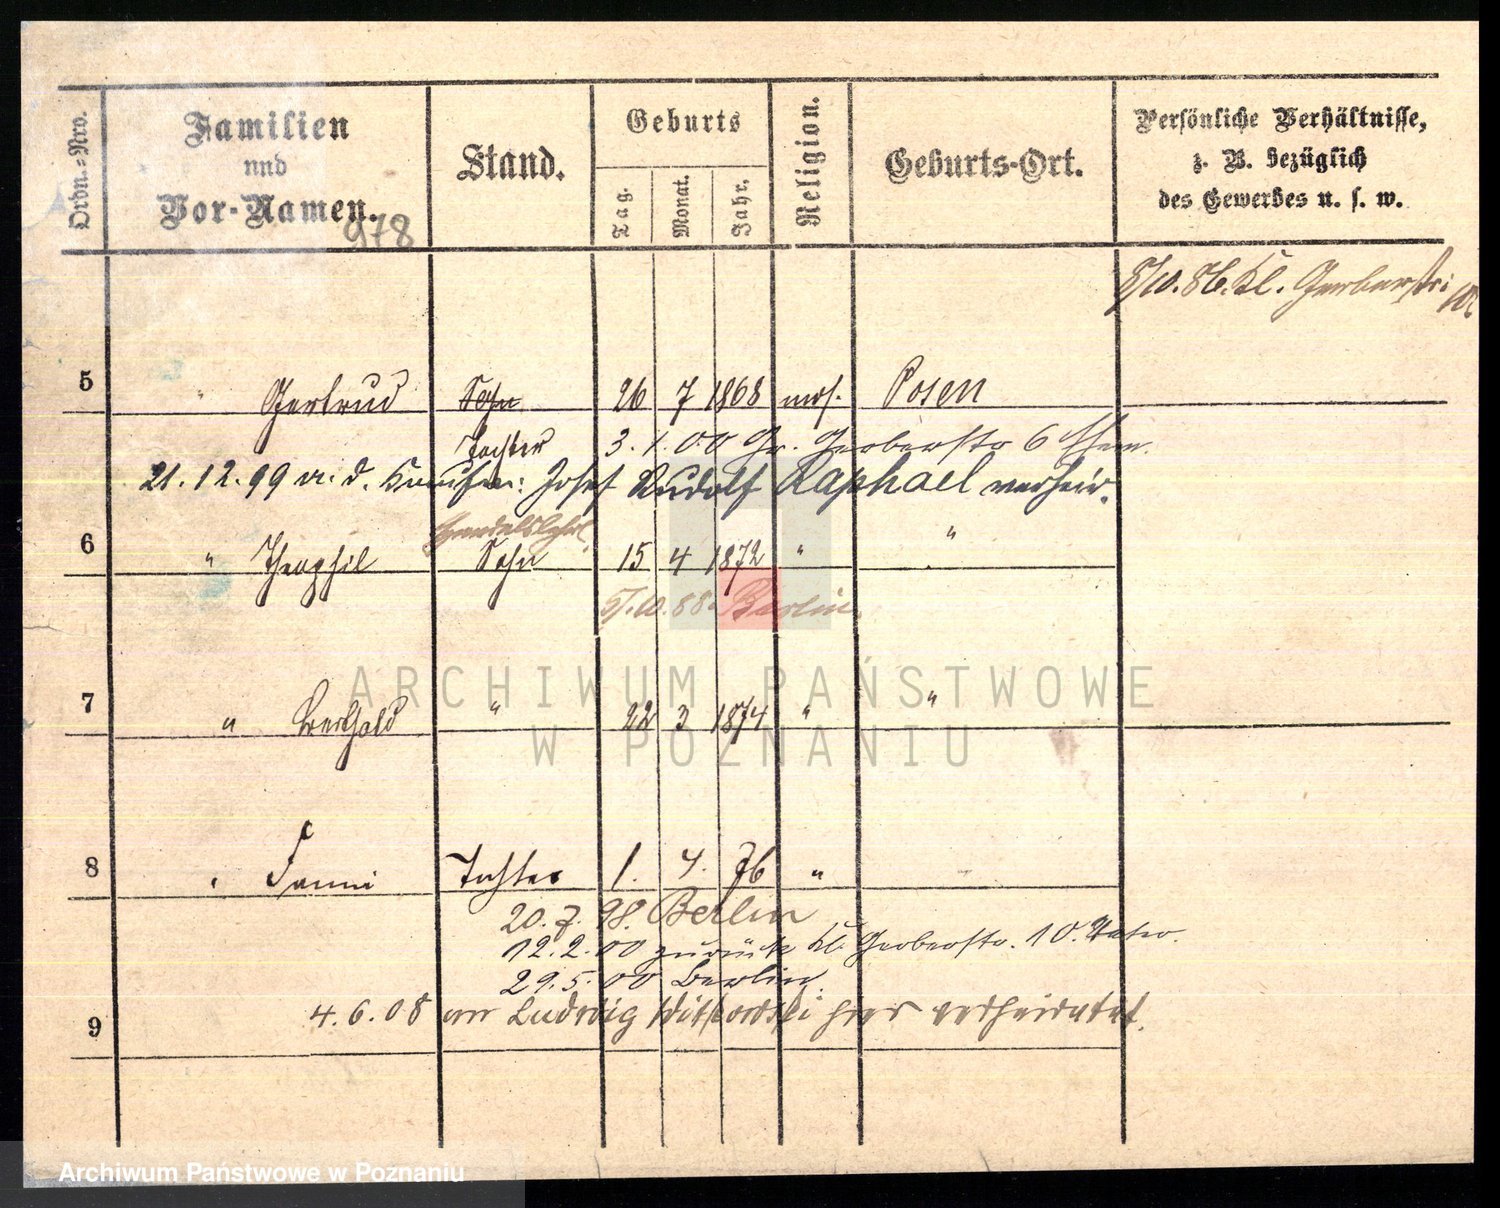 Ordn.=Nro.
Familien
und
Vor-Namen.
978
Stand.
Geburts
Tag.
Monat.
Jahr.
Religion.
Geburts-Ort.
Persönliche Verhältnisse,
z. B. bezüglich
des Gewerbes u. s. w.
5/10.86. Kl. Gerberstr: 10
5 " Gertrud Sohn 26 7 1868 mos. Posen
Tochter 3.1.00 Gr. Gerberstr 6
21.12.99 m. d. Kaufm: Josef Rudolf Raphael verheir.
Handelslehrl.
6 " Theophil Sohn 15 4 1872 " "
5/.10.88. Berlin.
7 " Berthold " 22 3 1874 " "
8 " Fanni Tochter 1. 4. 76 " "
20.7.98. Berlin
12.2.00 zurück Kl. Gerberstr. 10. Vater.
29.5.00 Berlin.
9 4.6.08 an Ludwig hier verheiratet.
ARCHIWUM PAŃSTWOWE
W POZNANIU
Archiwum Państwowe w Poznaniu